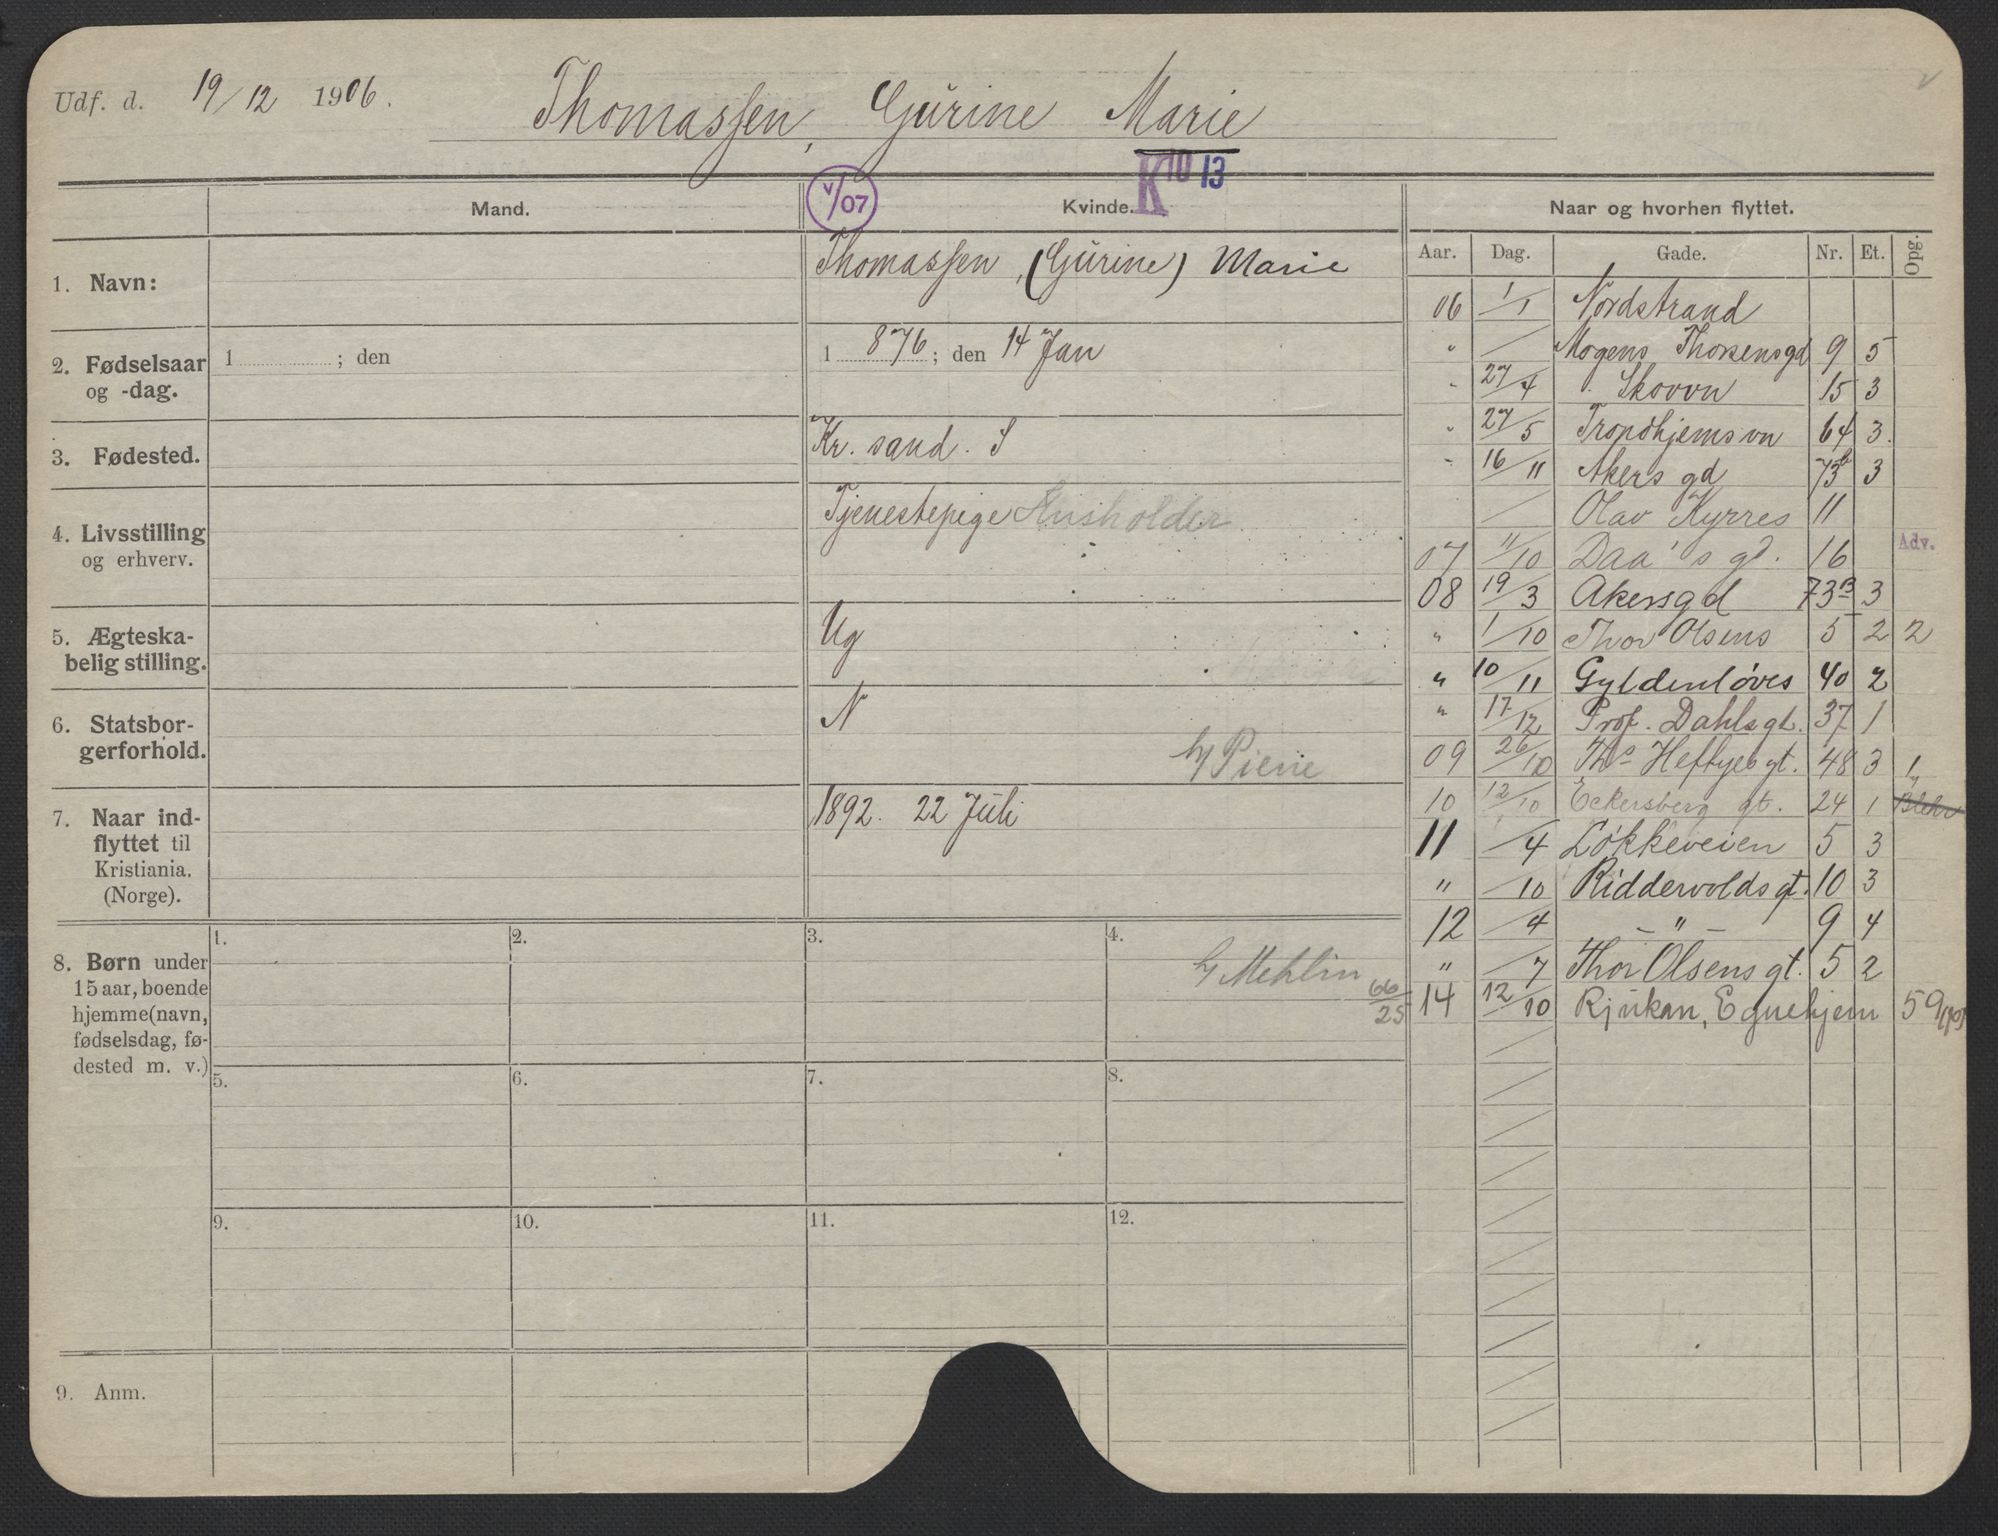 Udf. d. 19/12 1906.
Thomassen, Gurine Marie
V/07
K 10 13
Mand.
Kvinde.
Naar og hvorhen flyttet.
Aar. Dag. Gade. Nr. Et. Opg.
1. Navn:
Thomassen, (Gurine) Marie
2. Fødselsaar
og -dag.
1 ; den
1 876; den 14 Jan
3. Fødested.
Kr. sand. S
4. Livsstilling
og erhverv.
Tjenestepige Husholder
5. Ægteska-
belig stilling.
Ug
6. Statsbor-
gerforhold.
N
h/ Pierie
7. Naar ind-
flyttet til
Kristiania.
(Norge).
1892. 22 Juli
8. Børn under
15 aar, boende
hjemme (navn,
fødselsdag, fø-
dested m. v.)
1. 2. 3. 4.
h/ Mehlin
66/25
5. 6. 7. 8.
9. 10. 11. 12.
9. Anm.
06 1/1 Nordstrand
" / Mogens Thorsensgd 9 5
" 27/4 Skovvn 15 3
" 27/5 Trondhjemsvn 64 3.
" 16/11 Akers gd 73b 3
/ Olav Kyrres 11
07 11/10 Daa's gd. 16 Adv.
08 19/3 Akersgd 73B 3
" 1/10 Thor Olsens 5 2 2
" 10/11 Gyldenløves 40 2
" 17/12 Prof. Dahlsgt. 37 1
09 26/10 Ths Heftyes gt. 48 3 1
10 12/10 Eckersberg gt. 24 1
11 /4 Løkkeveien 5 3
" /10 Riddervolds gt. 10 3
12 /4 — " — 9 4
" /7 Thor Olsens gt. 5 2
14 12/10 Rjukan, Egnehjem 59